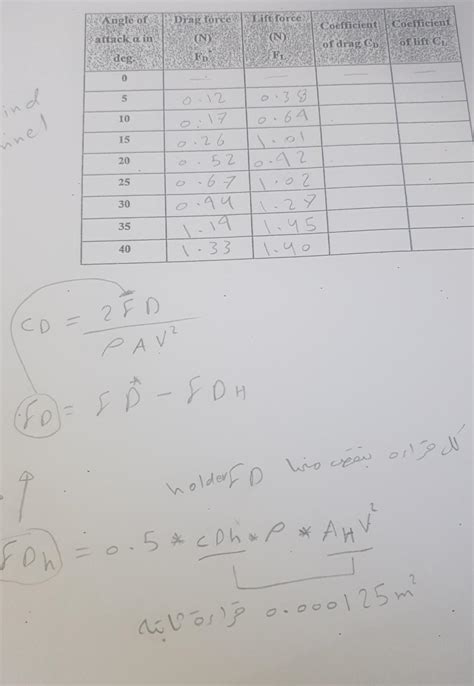 Angle of attack α in deg. | Drag force (N) F_D | Lift force (N) F_L | Coefficient of drag C_D | Coefficient of lift C_L
0 | — | — | — | —
5 | 0.12 | 0.38
10 | 0.17 | 0.64
15 | 0.26 | 1.01
20 | 0.52 | 0.92
25 | 0.67 | 1.02
30 | 0.94 | 1.27
35 | 1.19 | 1.45
40 | 1.33 | 1.40
CD = 2FD / ρAV²
FD = FD* - FDH
كل قراءه بنقص منها holder FD
FDh = 0.5 * CDh * ρ * AHV²
0.000125m² قراءة ثابته